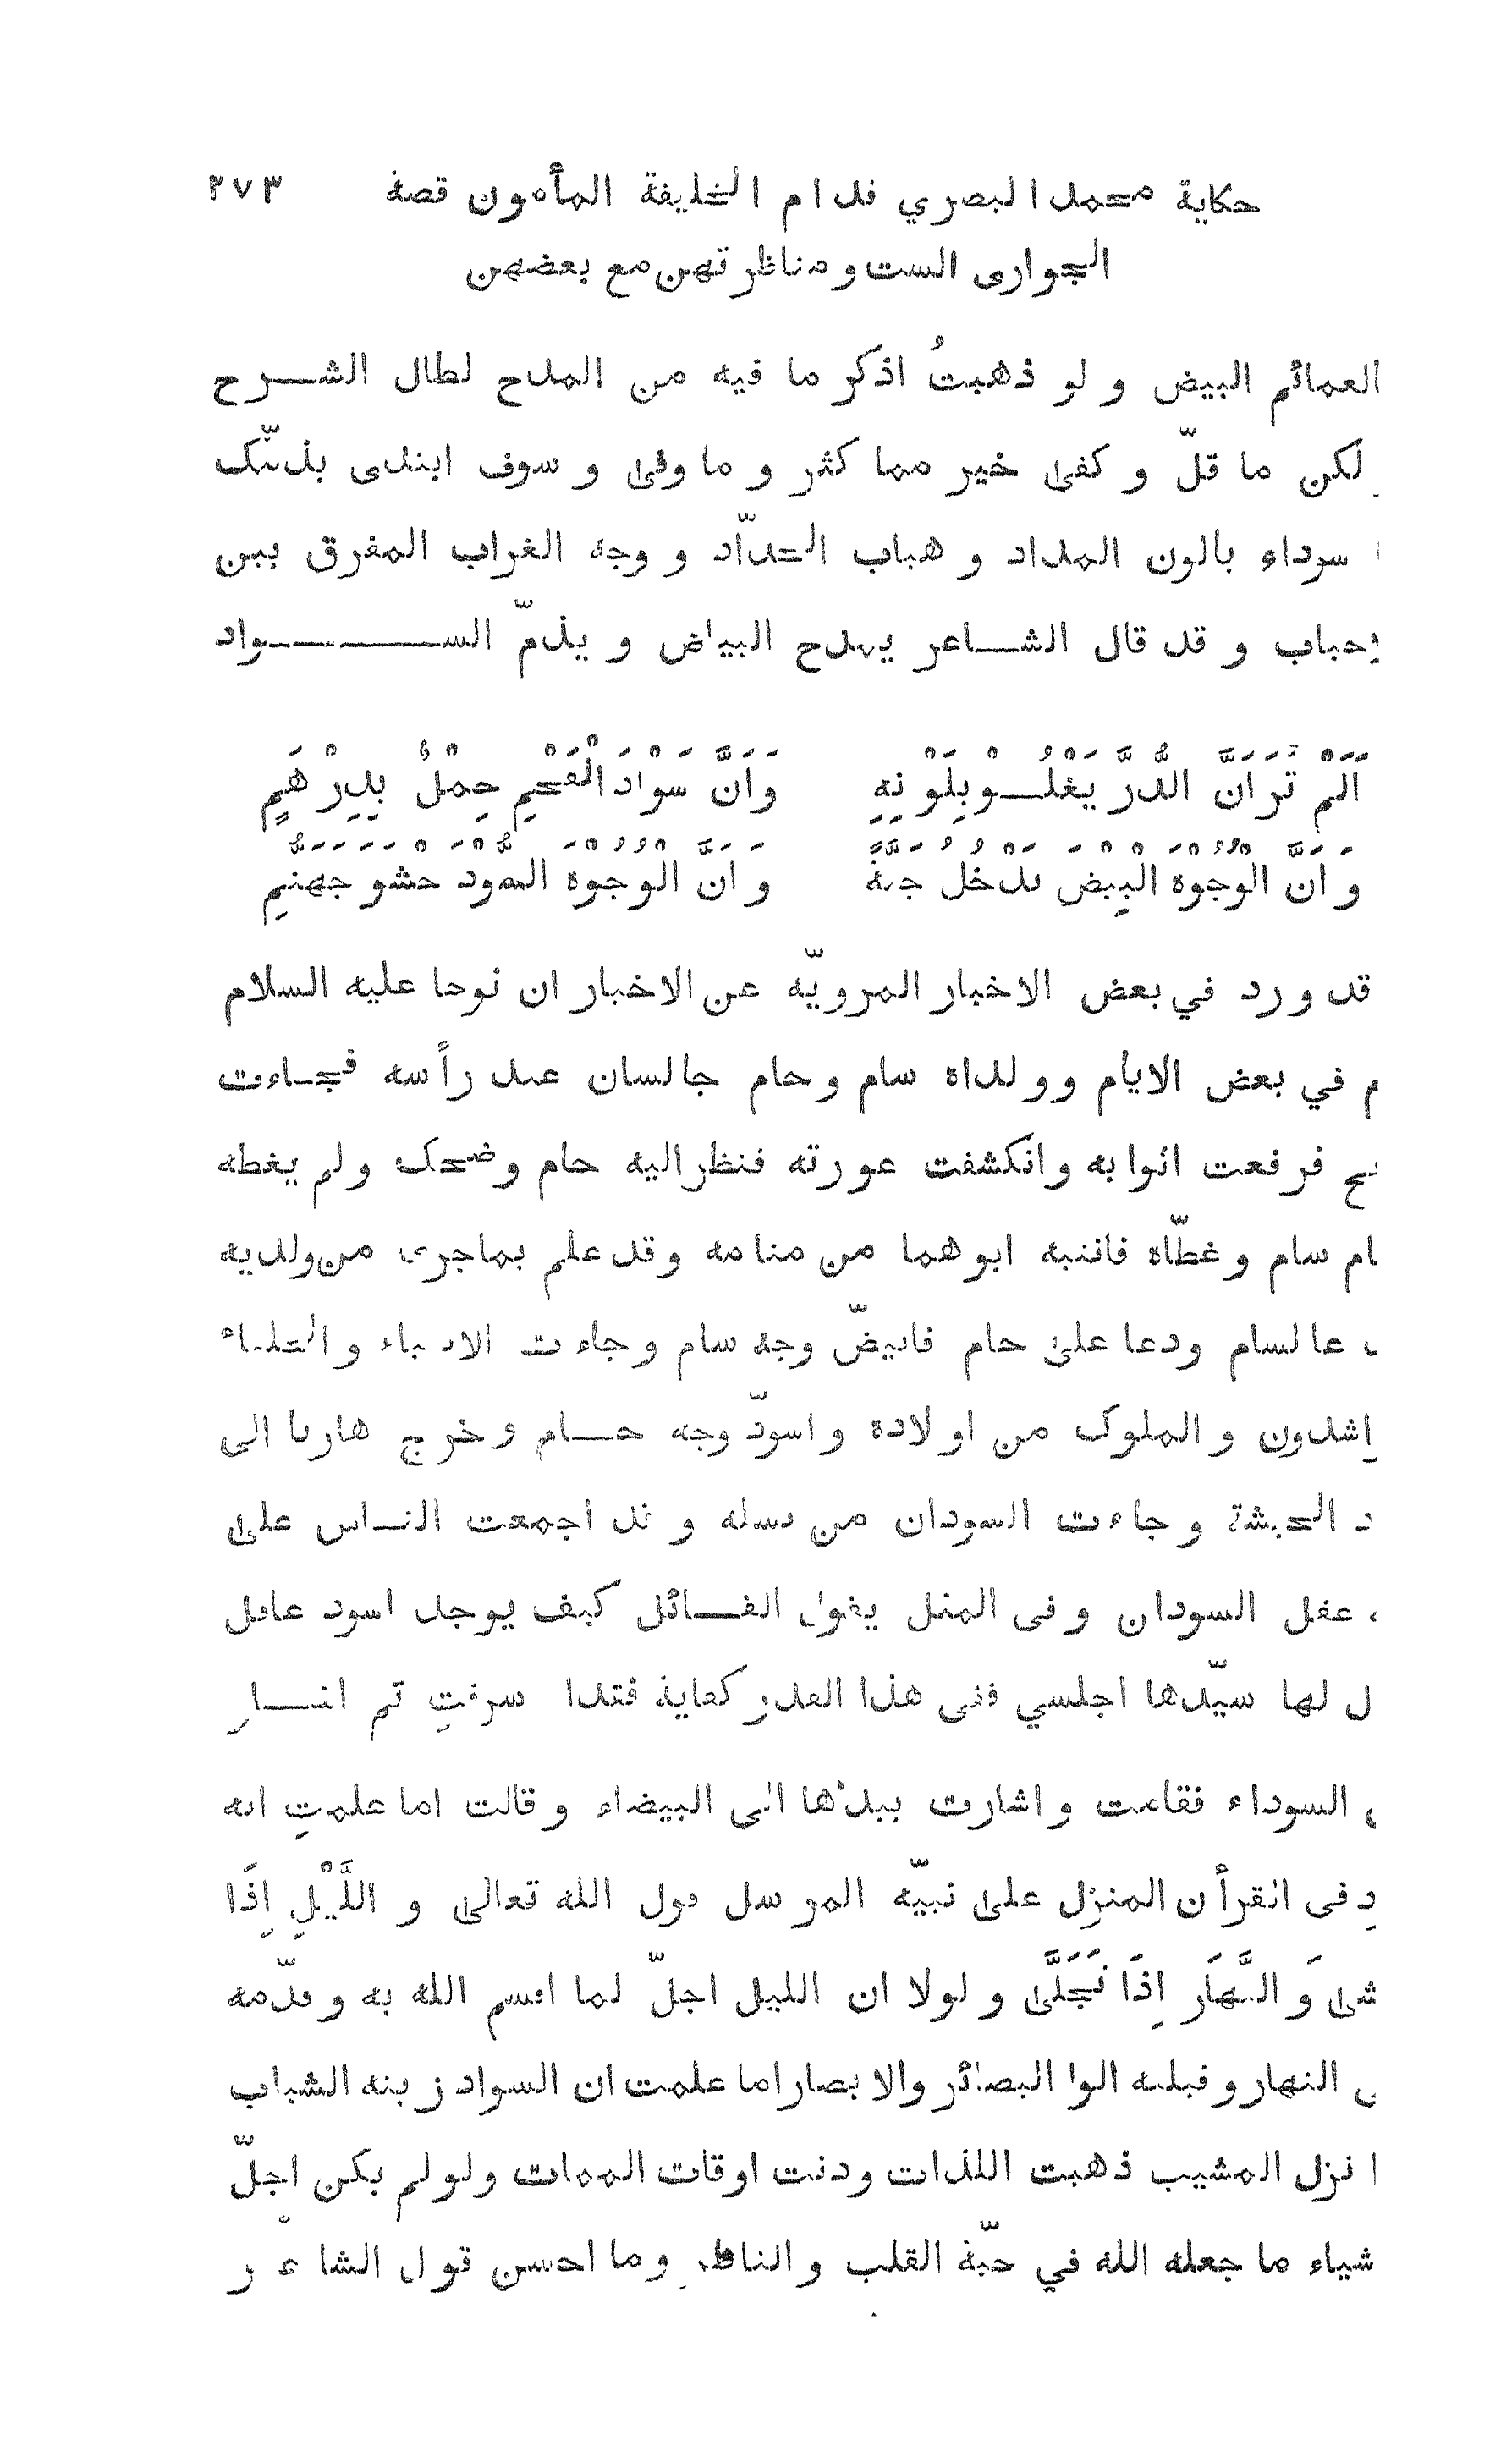 حكاية محمد البصري قدام الخليفة المأمون قصة ٢٧٣
الجوارى الست ومناظرتهن مع بعضهن
العمائم البيض و لو ذهبتُ اذكر ما فيه من المدح لطال الشرح
لكن ما قلّ و كفىٰ خير مما كثر و ما وفىٰ و سوف ابتدى بذمّك
سوداء يالون المداد و هباب الحدّاد و وجه الغراب المفرق بين
حباب و قد قال الشاعر يمدح البياض و يذمّ السواد
اَلَمْ تَرَ اَنَّ الدُّرَّ يَغْلُو بِلَوْنِهِ وَ اَنَّ سَوْادَ الْفَحْمِ حِمْلٌ بِدِرْهَمٍ
وَ اَنَّ الْوُجُوْهَ الْبِيْضَ تَدْخُلُ جَنَّةً وَ اَنَّ الْوُجُوْهَ السُّوْدَ حَشْوَ جَهَنَّمِ
قد ورد في بعض الاخبار المرويّه عن الاخبار ان نوحا عليه السلام
م في بعض الايام وولداه سام وحام جالسان عند رأسه فجاءت
يح فرفعت اثوابه وانكشفت عورته فنظر اليه حام وضحك ولم يغطه
ام سام وغطّاه فانتبه ابوهما من منامه وقد علم بماجرى من ولديه
عا لسام ودعا علىٰ حام فابيضّ وجه سام وجاءت الانبياء والخلفاء
اشدون و الملوك من اولاده و اسودّ وجه حام و خرج هاربا الى
د الحبشة و جاءت السودان من نسله و قد اجمعت الناس علىٰ
عقل السودان و فى المثل يقول القائل كيف يوجد اسود عاقل
ل لها سيّدها اجلسي ففى هذا القدر كفاية فقدا سرفتِ ثم اشار
السوداء فقامت و اشارت بيدها الى البيضاء و قالت اما علمتِ انه
د فى القرأن المنزل علىٰ نبيّه المرسل قول الله تعالىٰ و اللَّيْلِ اِذَا
شىٰ وَ النَّهَارِ اِذَا تَجَلَّىٰ و لولا ان الليل اجلّ لما اقسم الله به وقدّمه
النهار وقبلته الوا البصائر والابصار اما علمت ان السواد زينه الشباب
ا نزل المشيب ذهبت اللذات ودنت اوقات الممات ولولم يكن اجلّ
شياء ما جعله الله في حبّة القلب والناظر وما احسن قول الشاعر